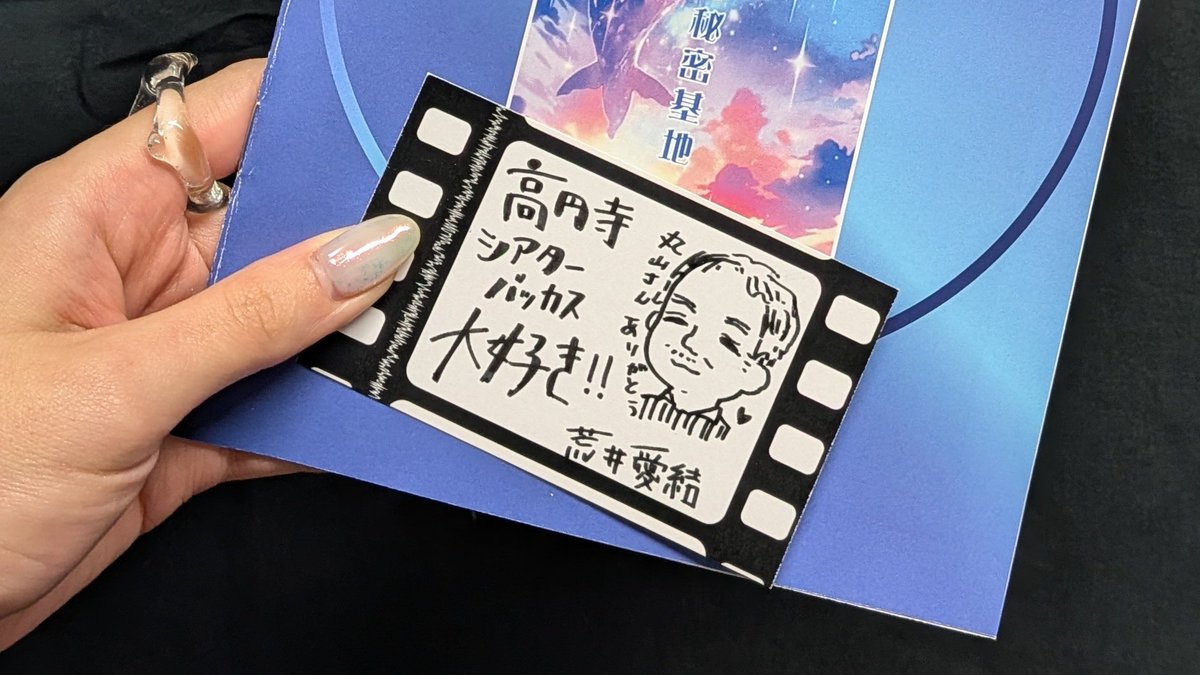 秘密基地
高円寺
シアター
バッカス
大好き!!
丸山さん
ありがとう
荒井愛結